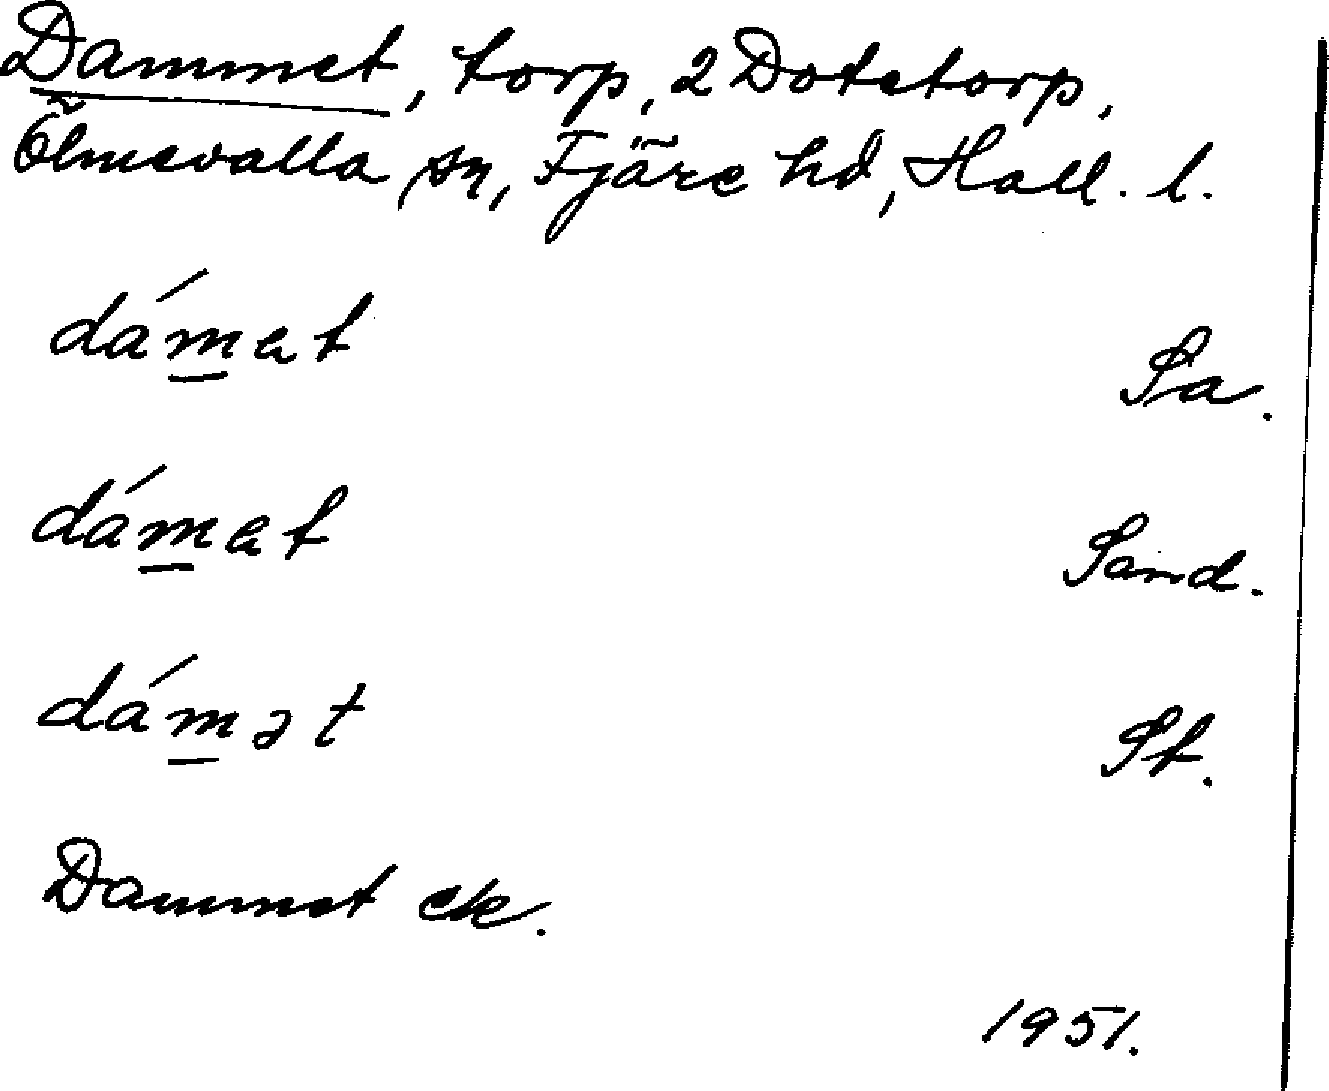 Dammet, torp, 2 Dotetorp,
Ölmevalla sn, Fjäre hd, Hall. l.
dámat Sa.
dámat Sand.
dámət St.
Dammet ek.
1951.